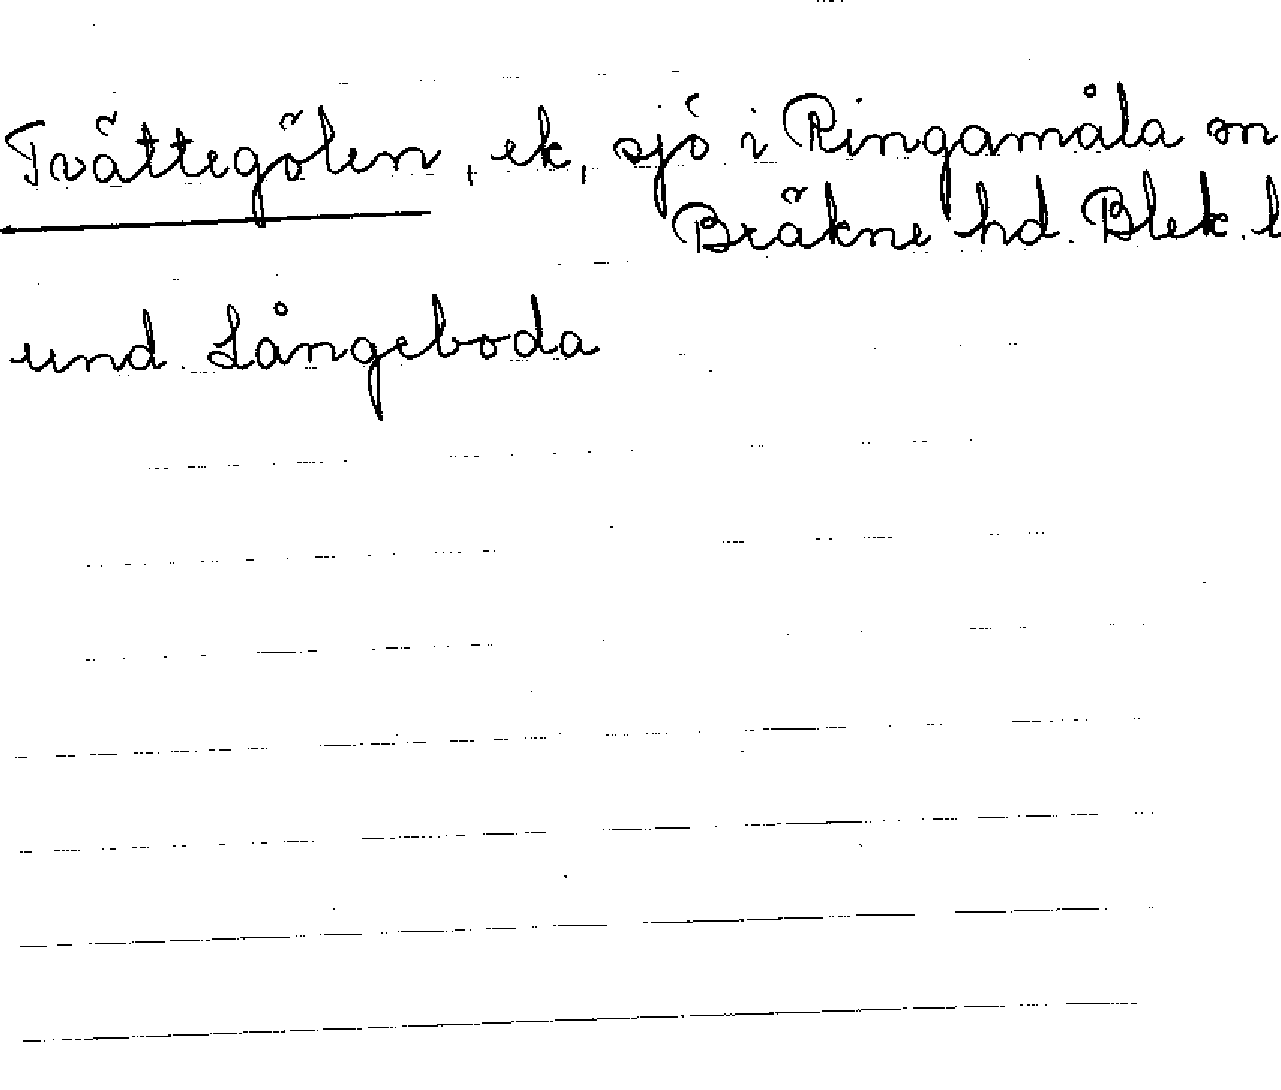 Tvättegölen, ek, sjö i Ringamåla sn
Bräkne hd. Blek. l
und. Långeboda